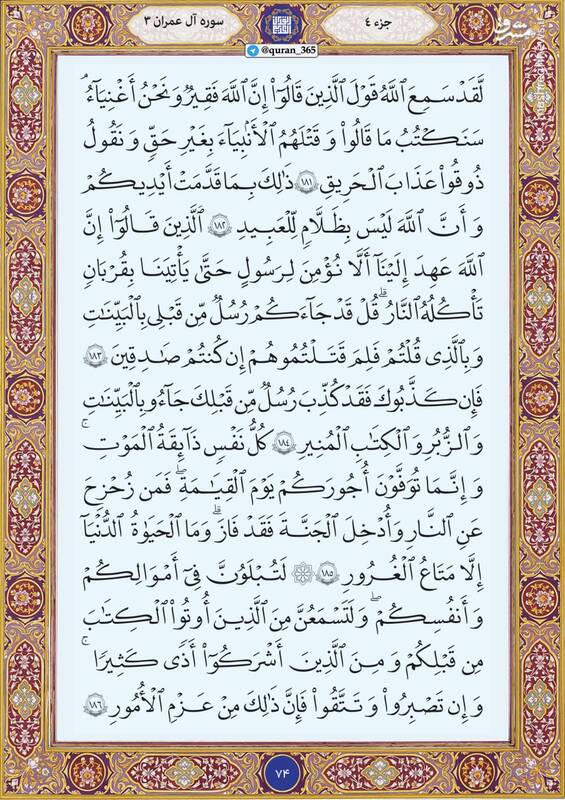 جزء ٤
سوره آل عمران ٣
مشرق
@quran_365
لَّقَدْ سَمِعَ ٱللَّهُ قَوْلَ ٱلَّذِينَ قَالُوٓاْ إِنَّ ٱللَّهَ فَقِيرٌ وَ نَحْنُ أَغْنِيَآءُۘ
سَنَكْتُبُ مَا قَالُواْ وَ قَتْلَهُمُ ٱلْأَنۢبِيَآءَ بِغَيْرِ حَقٍّ وَ نَقُولُ
ذُوقُواْ عَذَابَ ٱلْحَرِيقِ ١٨١ ذَٰلِكَ بِمَا قَدَّمَتْ أَيْدِيكُمْ
وَ أَنَّ ٱللَّهَ لَيْسَ بِظَلَّامٍ لِّلْعَبِيدِ ١٨٢ ٱلَّذِينَ قَالُوٓاْ إِنَّ
ٱللَّهَ عَهِدَ إِلَيْنَآ أَلَّا نُؤْمِنَ لِرَسُولٍ حَتَّىٰ يَأْتِيَنَا بِقُرْبَانٍ
تَأْكُلُهُ ٱلنَّارُۗ قُلْ قَدْ جَآءَكُمْ رُسُلٌ مِّن قَبْلِى بِٱلْبَيِّنَٰتِ
وَ بِٱلَّذِى قُلْتُمْ فَلِمَ قَتَلْتُمُوهُمْ إِن كُنتُمْ صَٰدِقِينَ ١٨٣
فَإِن كَذَّبُوكَ فَقَدْ كُذِّبَ رُسُلٌ مِّن قَبْلِكَ جَآءُو بِٱلْبَيِّنَٰتِ
وَ ٱلزُّبُرِ وَ ٱلْكِتَٰبِ ٱلْمُنِيرِ ١٨٤ كُلُّ نَفْسٍ ذَآئِقَةُ ٱلْمَوْتِۗ
وَ إِنَّمَا تُوَفَّوْنَ أُجُورَكُمْ يَوْمَ ٱلْقِيَٰمَةِۖ فَمَن زُحْزِحَ
عَنِ ٱلنَّارِ وَ أُدْخِلَ ٱلْجَنَّةَ فَقَدْ فَازَۗ وَ مَا ٱلْحَيَوٰةُ ٱلدُّنْيَآ
إِلَّا مَتَاعُ ٱلْغُرُورِ ١٨٥ ۞ لَتُبْلَوُنَّ فِىٓ أَمْوَالِكُمْ
وَ أَنفُسِكُمْۖ وَ لَتَسْمَعُنَّ مِنَ ٱلَّذِينَ أُوتُواْ ٱلْكِتَٰبَ
مِن قَبْلِكُمْ وَ مِنَ ٱلَّذِينَ أَشْرَكُوٓاْ أَذًى كَثِيرًاۚ
وَ إِن تَصْبِرُواْ وَ تَتَّقُواْ فَإِنَّ ذَٰلِكَ مِنْ عَزْمِ ٱلْأُمُورِ ١٨٦
٧۴